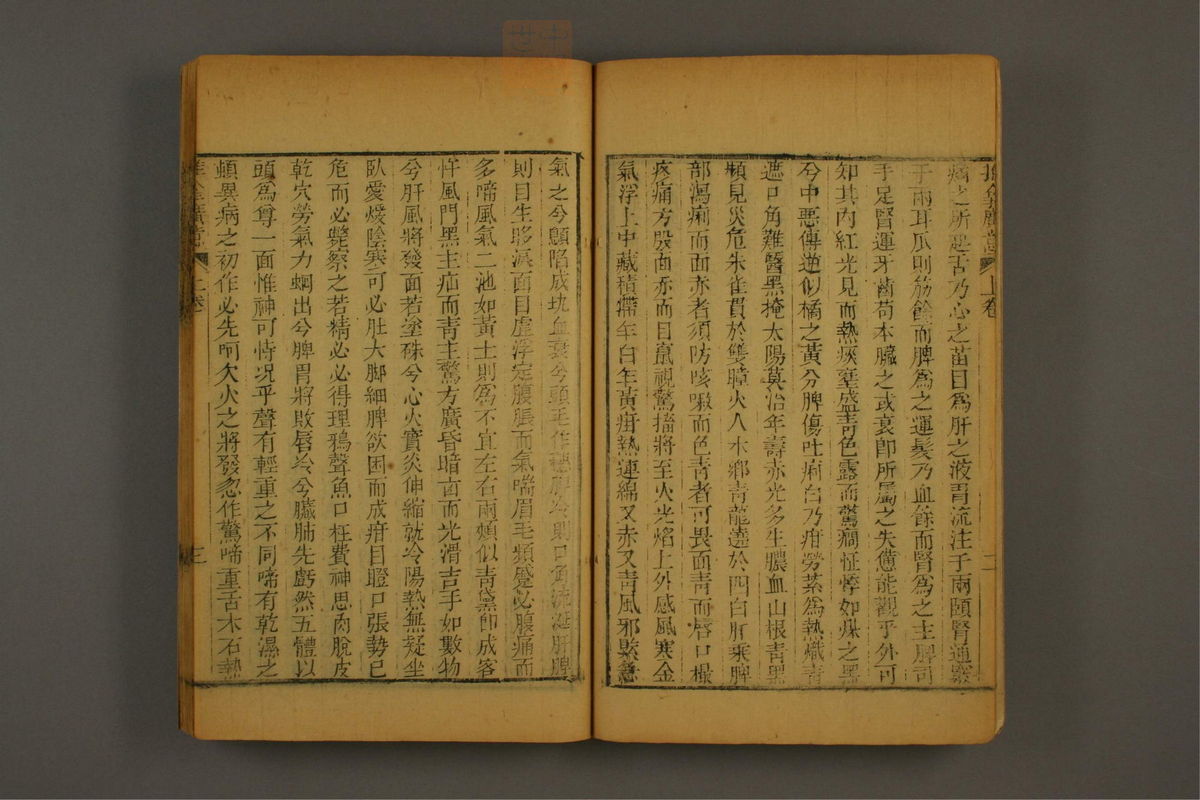 推拿廣意 上卷 二
竅之所起舌乃心之苗目為肝之液胃流注于兩頤腎通竅
于兩耳爪則筋餘而脾為之運髮乃血餘而腎為之主脾司
手足腎運牙齒苟本臟之或衰即所屬之失憊能觀乎外可
知其內紅光見而熱痰壅盛青色露而驚癇怔悸如煤之黑
兮中惡傳逆似橘之黃兮脾傷吐痢白乃疳勞紫為熱熾青
遮口角難醫黑掩太陽莫治年壽赤光多生膿血山根青黑
頻見災危朱雀貫於雙瞳火入水鄉青龍遶於四白肝乘脾
部瀉痢而面赤者須防咳嗽而色青者可畏面青而唇口撮
疼痛方殷面赤而目竄視驚搐將至火光焰上外感風寒金
氣浮上中藏積滯乍白乍黃疳熱連綿又赤又青風邪緊急
氣乏兮顖陷成坑血衰兮頭毛作穗脾冷則口角流涎肝脾
則目生眵淚面目虛浮定腹脹而氣喘眉毛頻蹙必腹痛而
多啼風氣二池如黃土則為不宜左右兩頰似青黛即成客
忤風門黑主疝而青主驚方廣昏暗凶而光滑吉手如數物
兮肝風將發面若塗硃兮心火實炎伸縮就冷陽熱無疑坐
臥愛煖陰寒可必肚大脚細脾欲困而成疳目瞪口張勢已
危而必斃察之若精必必得理鴉聲魚口枉費神思肉脫皮
乾穴勞氣力蛔出兮脾胃將敗唇冷兮臟肺先虧然五體以
頭為尊一面惟神可恃況乎聲有輕重之不同啼有乾濕之
頓異病之初作必先呵欠火之將發忽作驚啼重舌木石熱
推拿廣意 上卷 三